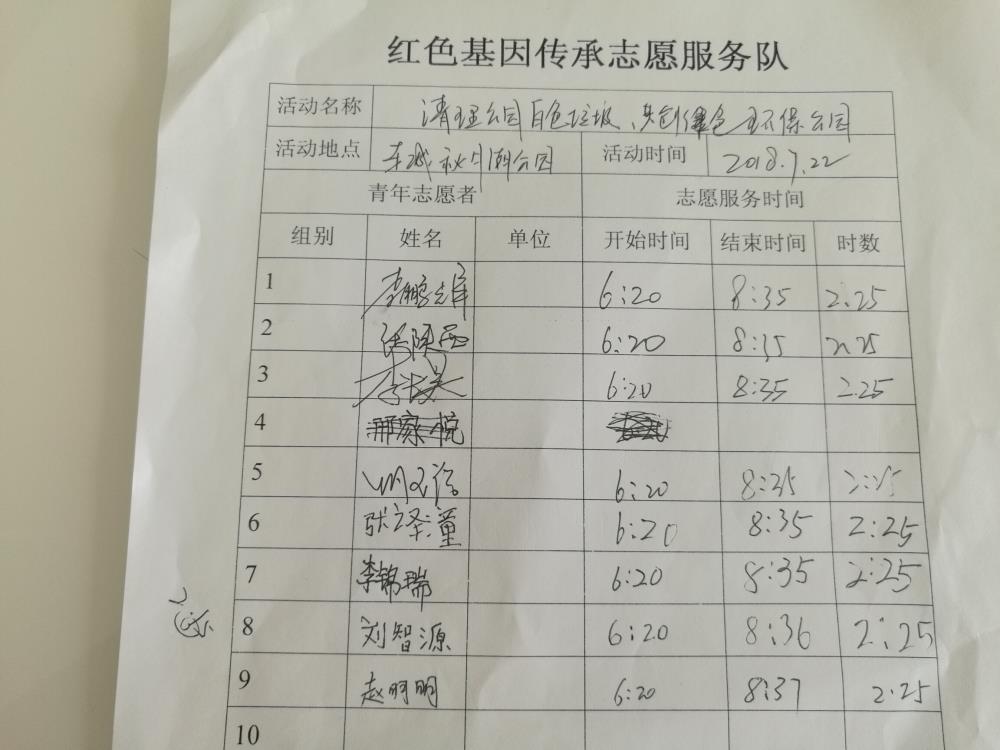 红色基因传承志愿服务队
活动名称 清理公园白色垃圾、共创绿色环保公园
活动地点 东城秋月湖公园 活动时间 2018.7.22
青年志愿者 志愿服务时间
组别 姓名 单位 开始时间 结束时间 时数
1 李鹏 6:20 8:35 2.25
2 陕西 6:20 8:35 2.25
3 李 6:20 8:35 2.25
4
5 6:20 8:35 2:25
6 张泽童 6:20 8:35 2:25
7 李锦瑞 6:20 8:35 2:25
8 刘智源 6:20 8:36 2:25
9 赵明明 6:20 8:37 2.25
10